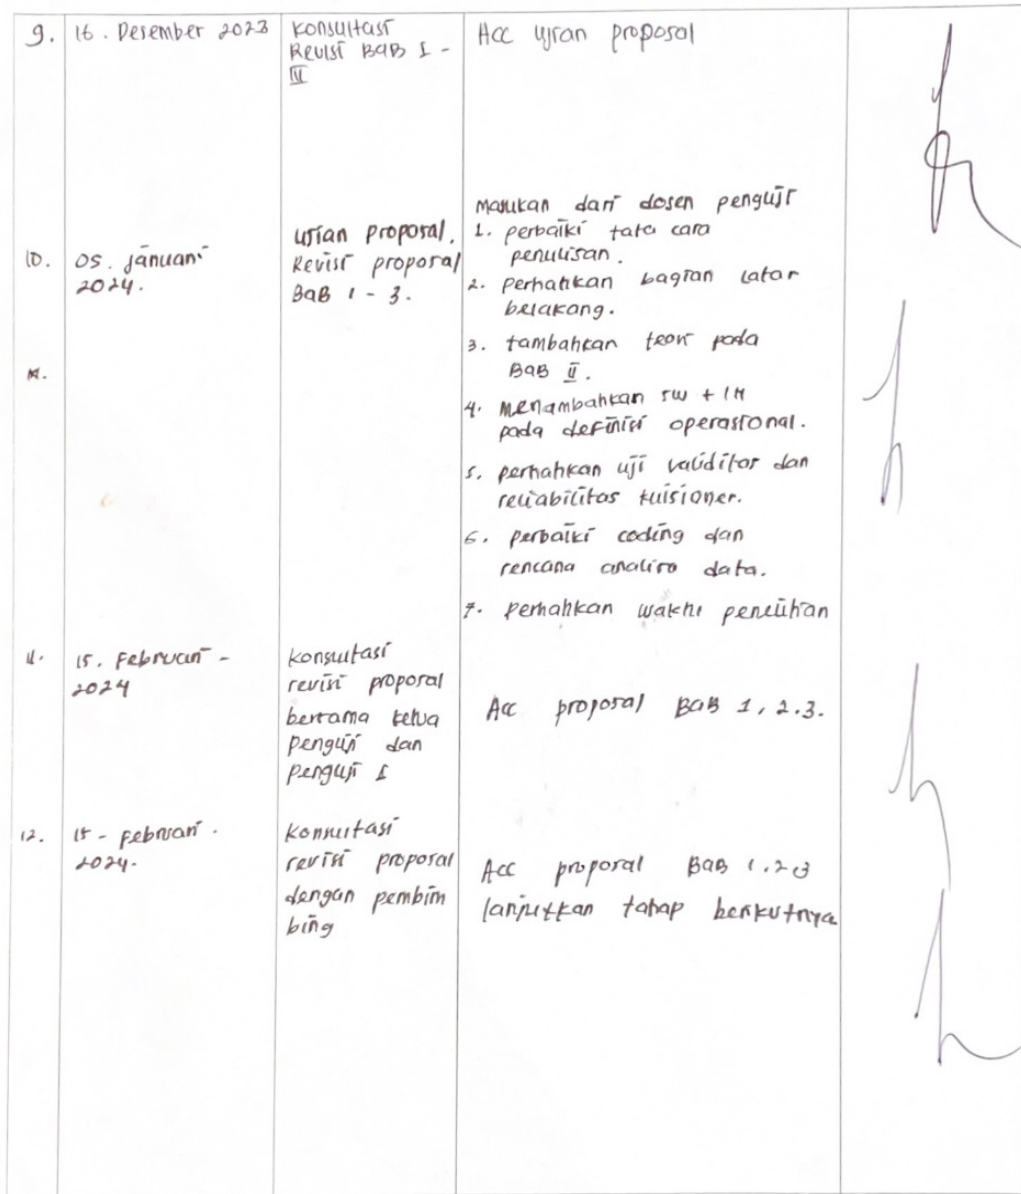 9.
16. Desember 2023
Konsultasi
Revisi BAB I -
III
Acc ujian proposal
10.
05. januari
2024.
ujian proposal.
Revisi proposal
BaB 1 - 3.
Masukan dari dosen penguji
1. perbaiki tata cara
penulisan.
2. perhatikan bagian latar
belakang.
3. tambahkan teori pada
BAB II.
4. Menambahkan 5W + 1H
pada definisi operasional.
5. perhatikan uji validitas dan
reliabilitas kuisioner.
6. perbaiki coding dan
rencana analisa data.
7. perhatikan waktu penelitian
11.
15. Februari -
2024
konsultasi
revisi proposal
bersama ketua
penguji dan
penguji I
Acc proposal BAB 1, 2.3.
12.
15 - Februari.
2024.
Konsultasi
revisi proposal
dengan pembim
bing
Acc proposal BaB 1.2.3
lanjutkan tahap berikutnya